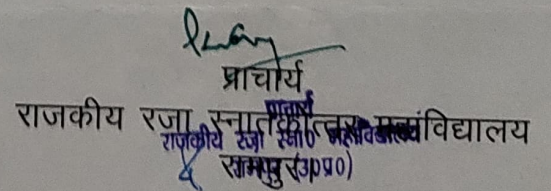 प्राचार्य
राजकीय रजा स्नातकोत्तर महाविद्यालय
प्राचार्य
राजकीय रजा स्ना० महाविद्यालय
रामपुर (उ०प्र०)